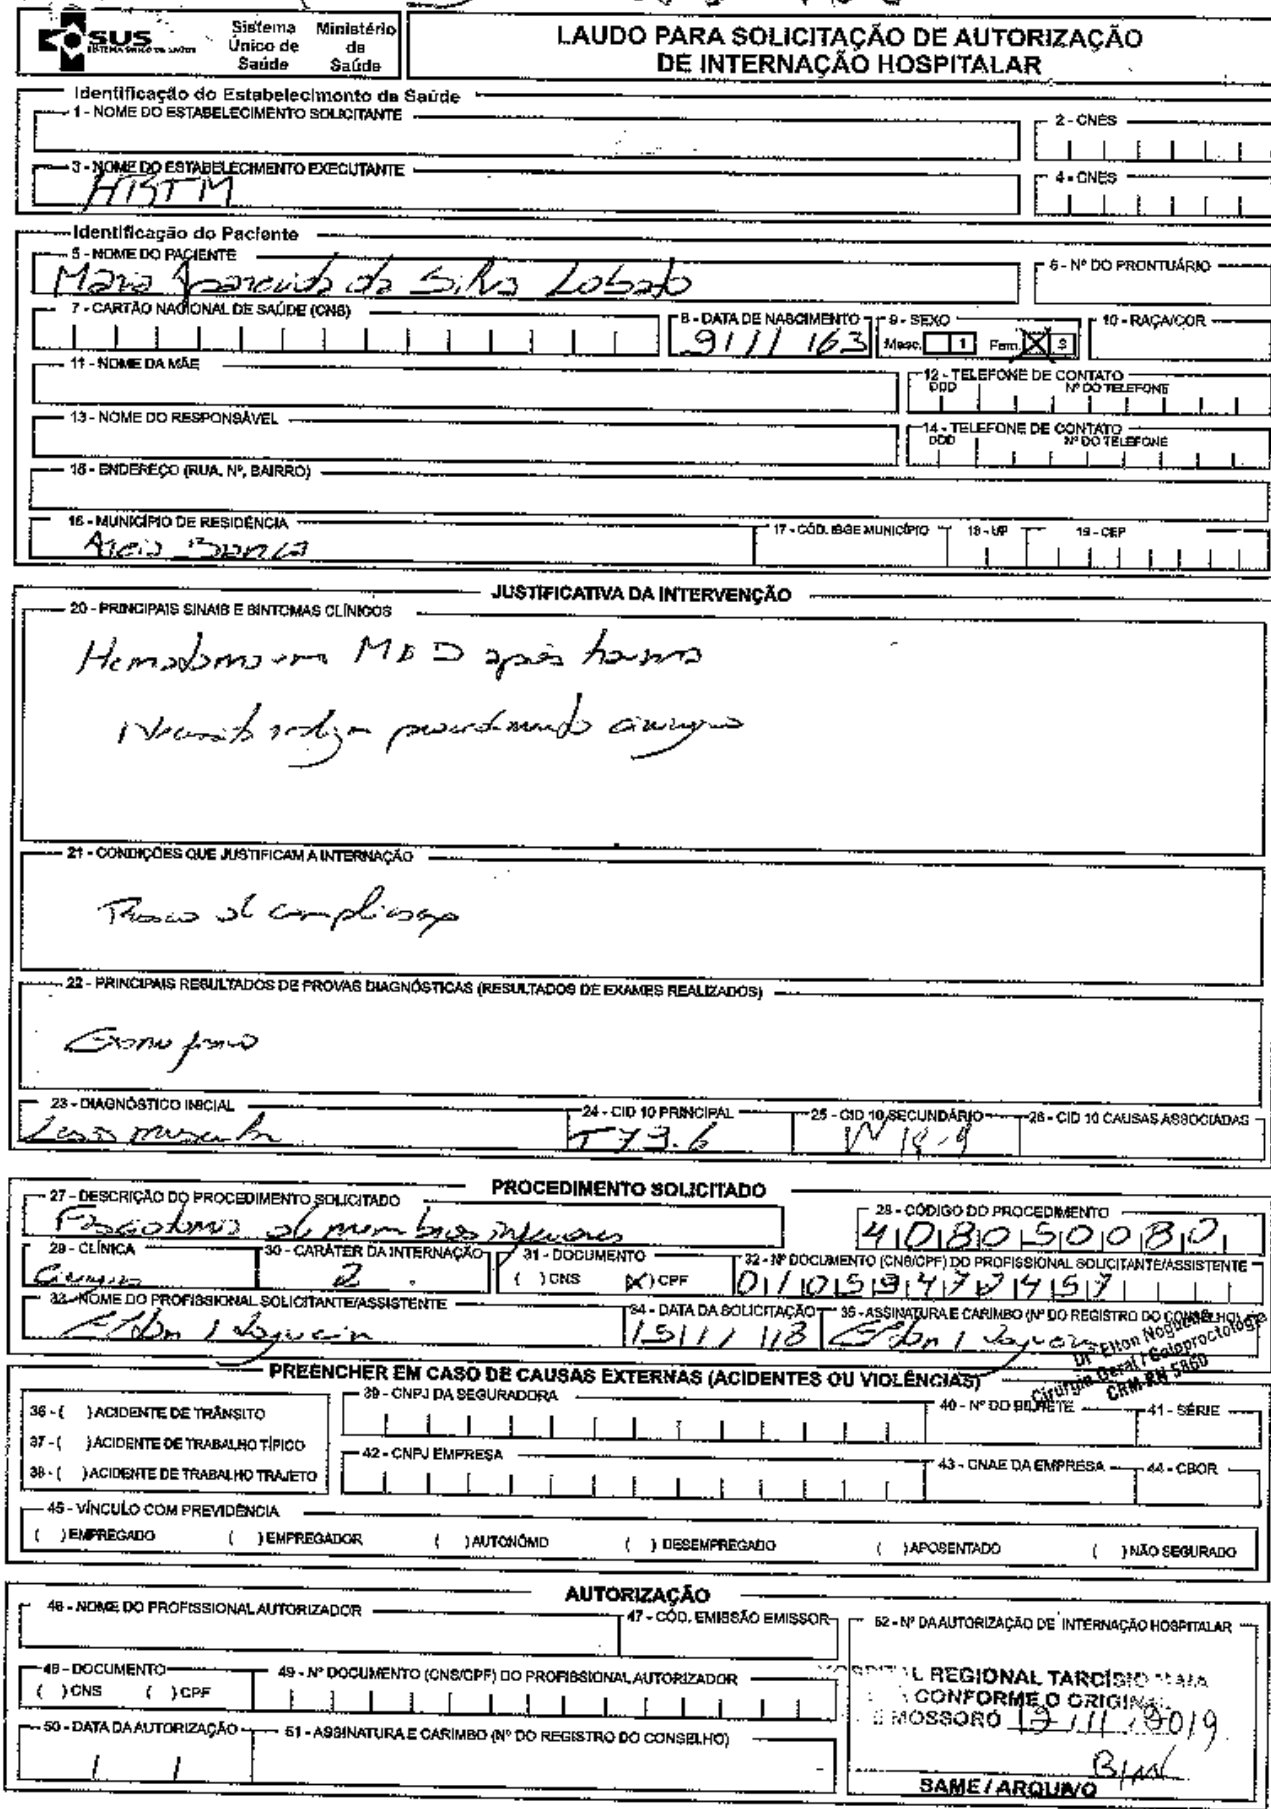 SUS
SISTEMA ÚNICO DE SAÚDE
Sistema Único de Saúde
Ministério da Saúde
LAUDO PARA SOLICITAÇÃO DE AUTORIZAÇÃO
DE INTERNAÇÃO HOSPITALAR
Identificação do Estabelecimento de Saúde
1 - NOME DO ESTABELECIMENTO SOLICITANTE
2 - CNES
3 - NOME DO ESTABELECIMENTO EXECUTANTE
HRTM
4 - CNES
Identificação do Paciente
5 - NOME DO PACIENTE
Maria Aparecida da Silva Lobato
6 - Nº DO PRONTUÁRIO
7 - CARTÃO NACIONAL DE SAÚDE (CNS)
8 - DATA DE NASCIMENTO
9 / 11 / 63
9 - SEXO
Masc. 1 Fem. X 3
10 - RAÇA/COR
11 - NOME DA MÃE
12 - TELEFONE DE CONTATO
DDD Nº DO TELEFONE
13 - NOME DO RESPONSÁVEL
14 - TELEFONE DE CONTATO
DDD Nº DO TELEFONE
15 - ENDEREÇO (RUA, Nº, BAIRRO)
16 - MUNICÍPIO DE RESIDÊNCIA
Areia Branca
17 - CÓD. IBGE MUNICÍPIO
18 - UF
19 - CEP
JUSTIFICATIVA DA INTERVENÇÃO
20 - PRINCIPAIS SINAIS E SINTOMAS CLÍNICOS
Hematoma em após trauma
Necessita realizar procedimento cirurgico
21 - CONDIÇÕES QUE JUSTIFICAM A INTERNAÇÃO
Risco de complicação
22 - PRINCIPAIS RESULTADOS DE PROVAS DIAGNÓSTICAS (RESULTADOS DE EXAMES REALIZADOS)
Exame fisico
23 - DIAGNÓSTICO INICIAL
Lesão muscular
24 - CID 10 PRINCIPAL
T79.6
25 - CID 10 SECUNDÁRIO
26 - CID 10 CAUSAS ASSOCIADAS
PROCEDIMENTO SOLICITADO
27 - DESCRIÇÃO DO PROCEDIMENTO SOLICITADO
Fasciotomia de membros inferiores
28 - CÓDIGO DO PROCEDIMENTO
408050080
29 - CLÍNICA
Cirurgia
30 - CARÁTER DA INTERNAÇÃO
2
31 - DOCUMENTO
( ) CNS (X) CPF
32 - Nº DOCUMENTO (CNS/CPF) DO PROFISSIONAL SOLICITANTE/ASSISTENTE
01059472457
33 - NOME DO PROFISSIONAL SOLICITANTE/ASSISTENTE
Elton Nogueira
34 - DATA DA SOLICITAÇÃO
15 / 11 / 18
35 - ASSINATURA E CARIMBO (Nº DO REGISTRO DO CONSELHO)
Elton Nogueira
Dr Elton Nogueira
Cirurgia Geral / Coloproctologia
CRM-RN 5860
PREENCHER EM CASO DE CAUSAS EXTERNAS (ACIDENTES OU VIOLÊNCIAS)
36 - ( ) ACIDENTE DE TRÂNSITO
37 - ( ) ACIDENTE DE TRABALHO TÍPICO
38 - ( ) ACIDENTE DE TRABALHO TRAJETO
39 - CNPJ DA SEGURADORA
40 - Nº DO BILHETE
41 - SÉRIE
42 - CNPJ EMPRESA
43 - CNAE DA EMPRESA
44 - CBOR
45 - VÍNCULO COM PREVIDÊNCIA
( ) EMPREGADO ( ) EMPREGADOR ( ) AUTONÔMO ( ) DESEMPREGADO ( ) APOSENTADO ( ) NÃO SEGURADO
AUTORIZAÇÃO
46 - NOME DO PROFISSIONAL AUTORIZADOR
47 - CÓD. EMISSÃO EMISSOR
52 - Nº DA AUTORIZAÇÃO DE INTERNAÇÃO HOSPITALAR
48 - DOCUMENTO
( ) CNS ( ) CPF
49 - Nº DOCUMENTO (CNS/CPF) DO PROFISSIONAL AUTORIZADOR
50 - DATA DA AUTORIZAÇÃO
/ /
51 - ASSINATURA E CARIMBO (Nº DO REGISTRO DO CONSELHO)
HOSPITAL REGIONAL TARCÍSIO MAIA
CONFORME O ORIGINAL
MOSSORÓ / 11 / 2019
SAME / ARQUIVO